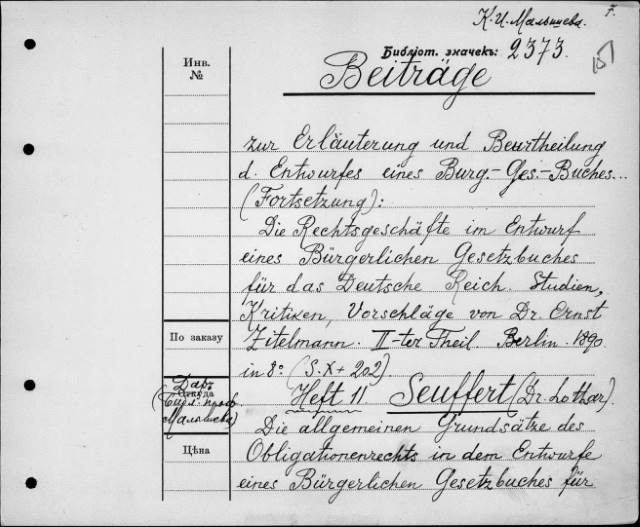 К. И. Малышева.
F.
Библіот. значекъ: 2373.
151
Инв.
№
Beiträge
zur Erläuterung und Beurtheilung
d. Entwurfes eines Burg.- Ges.- Buches...
(Fortsetzung):
Die Rechtsgeschäfte im Entwurf
eines Bürgerlichen Gesetzbuches
für das Deutsche Reich. Studien,
Kritiken, Vorschläge von Dr. Ernst
По заказу
Zitelmann. II-ter Theil. Berlin. 1890
in 8° (S. X + 202)
Даръ
Откуда
(Библ. проф.
Малышева)
Heft 11. Seuffert (Dr. Lothar).
Die allgemeinen Grundsätze des
Цѣна
Obligationenrechts in dem Entwurfe
eines Bürgerlichen Gesetzbuches für